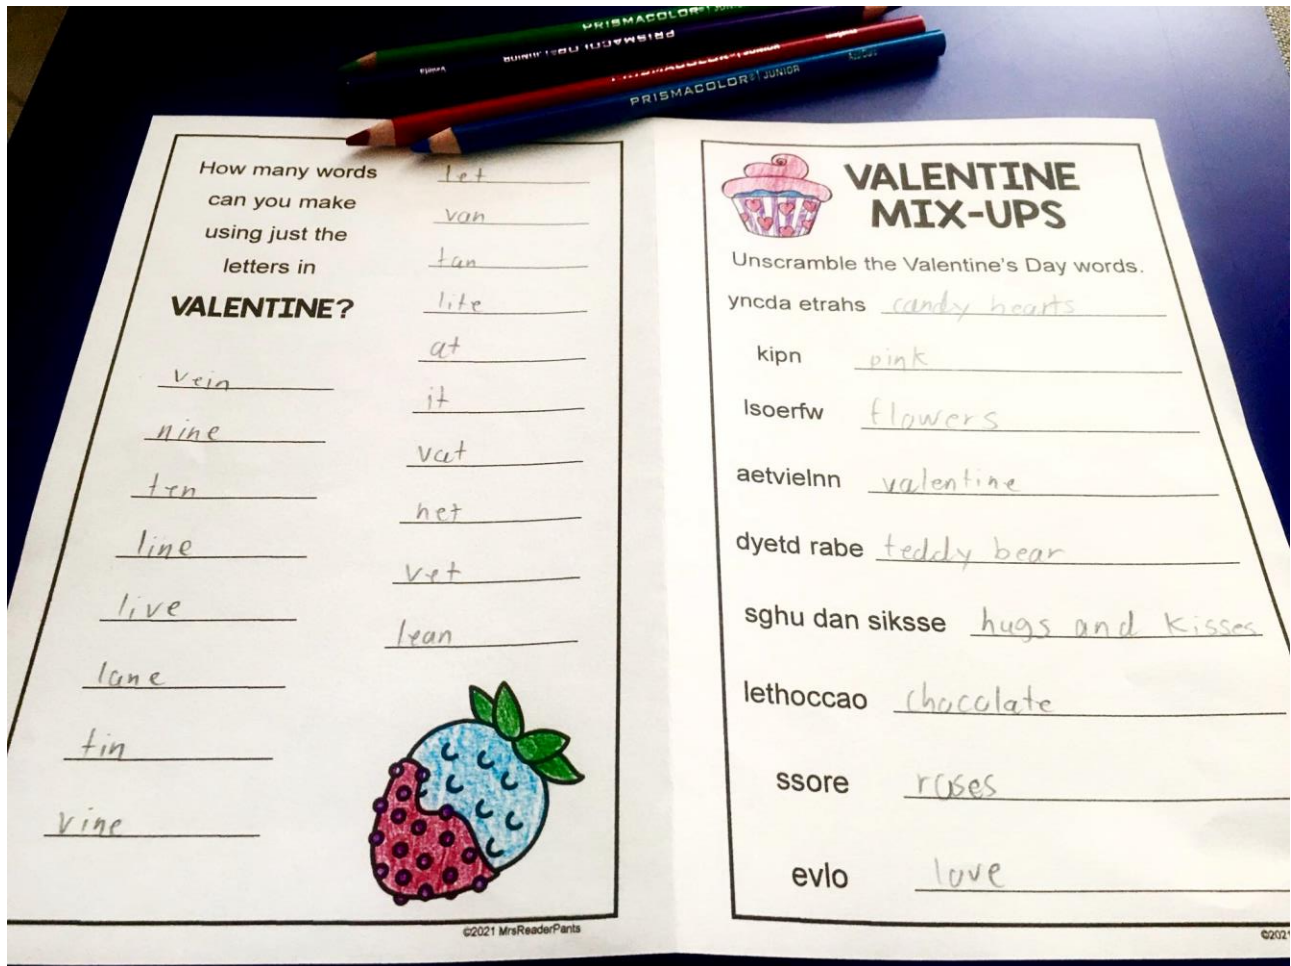 PRISMACOLOR JUNIOR
PRISMACOLOR JUNIOR
PRISMACOLOR JUNIOR
PRISMACOLOR JUNIOR
How many words
can you make
using just the
letters in
VALENTINE?
vein
nine
ten
line
live
lane
tin
vine
let
van
tan
lite
at
it
vat
net
vet
lean
©2021 MrsReaderPants
VALENTINE
MIX-UPS
Unscramble the Valentine's Day words.
yncda etrahs candy hearts
kipn pink
lsoerfw flowers
aetvielnn valentine
dyetd rabe teddy bear
sghu dan siksse hugs and kisses
lethoccao chocolate
ssore roses
evlo love
©2021